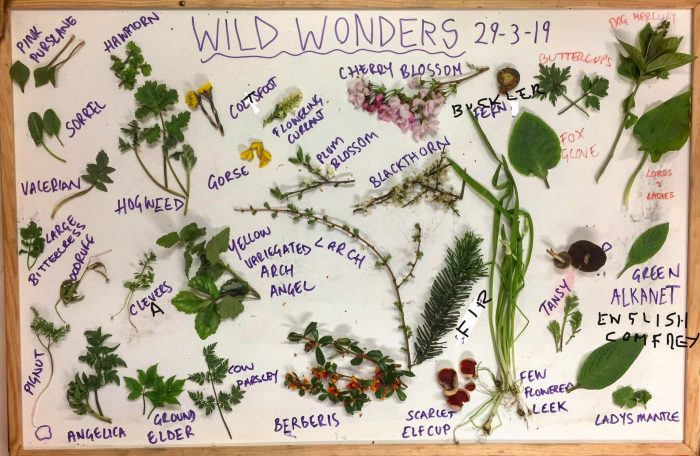 WILD WONDERS 29-3-19
DOG MERCURY
PINK
PURSLANE
HAWTHORN
SORREL
COLTSFOOT
FLOWERING
CURRENT
CHERRY BLOSSOM
BUCKLER
FERN
BUTTERCUPS
FOX
GLOVE
LORDS &
LADIES
VALERIAN
HOGWEED
GORSE
PLUM
BLOSSOM
BLACKTHORN
LARGE
BITTERCRESS
WOODRUFF
CLEVERS
A
YELLOW
VARIEGATED
ARCH
ANGEL
LARCH
FIR
TANSY
GREEN
ALKANET
ENGLISH
COMFREY
PIGNUT
ANGELICA
GROUND
ELDER
COW
PARSLEY
BERBERIS
SCARLET
ELFCUP
FEW
FLOWERED
LEEK
LADYS MANTLE